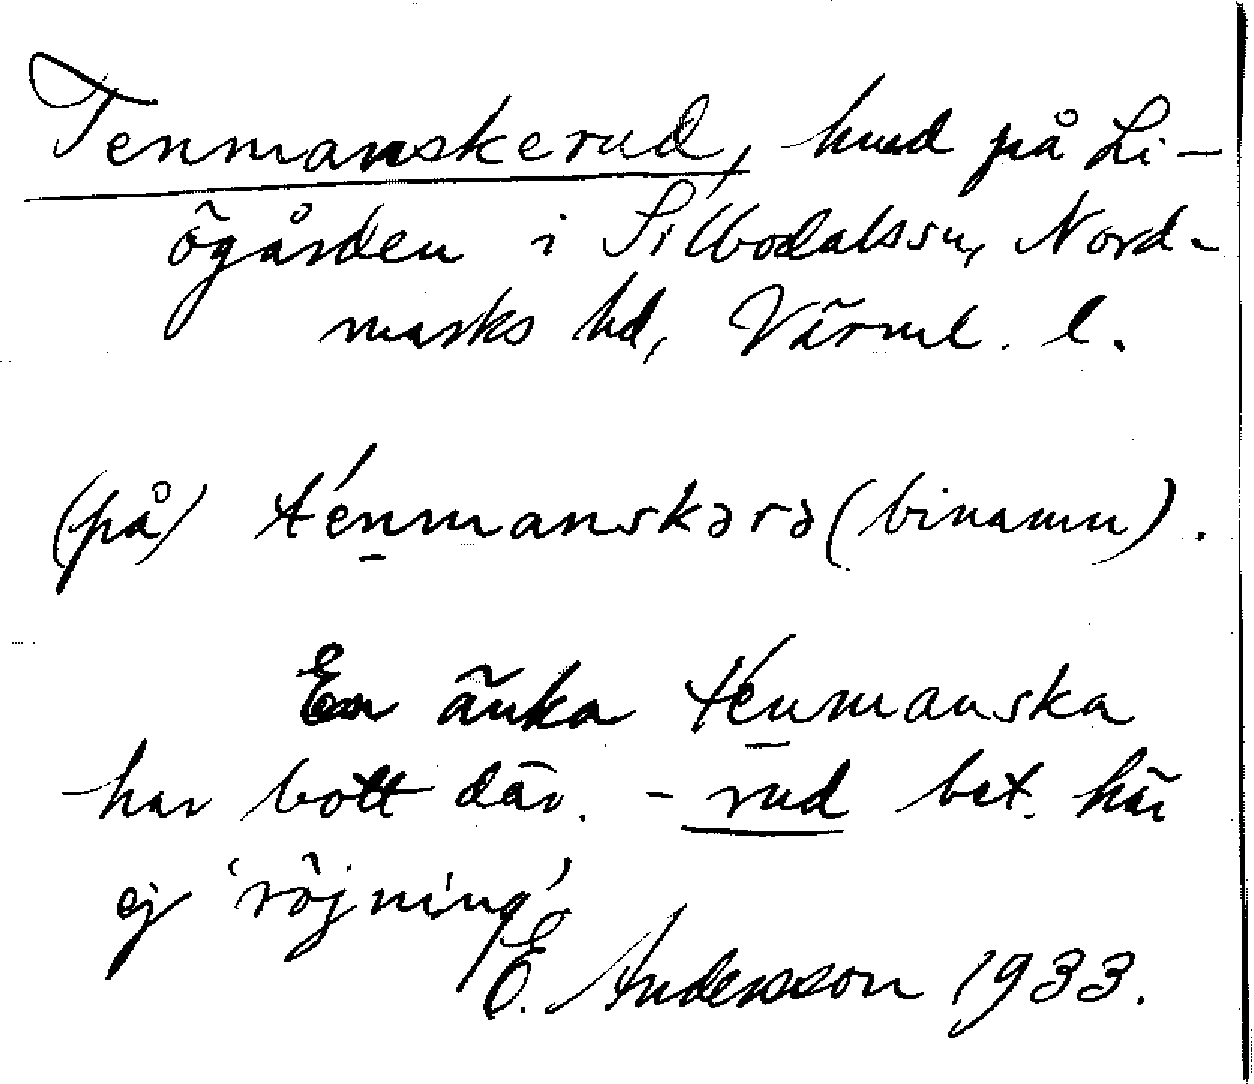 Tenmanskerud, hmd på Li-
ögården i Silbodalssn, Nord-
marks hd, Värml. l.
(på) ténmanskərə (binamn).
En änka ténmanska
har bott där. - rud bet. här
ej 'röjning'
E. Andersson 1933.